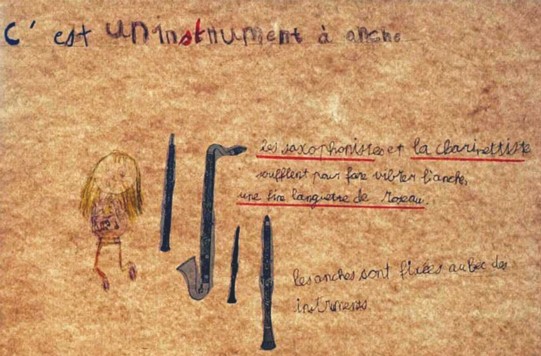 C'est un instrument à anche
les saxophonistes et la clarinettiste
soufflent pour faire vibrer l'anche,
une fine languette de roseau.
les anches sont fixées au bec des
instruments.